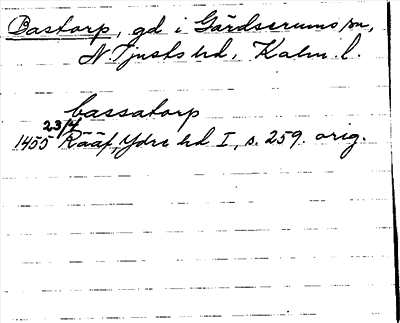 Bastorp, gd i Gärdserums sn,
N. Tjusts hd, Kalm. l.
bassatorp
1455 23/4 Rääf, Ydre hd I, s. 259. orig.